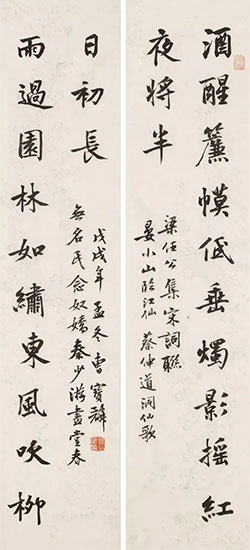 酒醒簾幙低垂燭影搖紅
夜將半
梁任公集宋詞聯
晏小山臨江仙 蔡伸道洞仙歌
雨過園林如繡東風吹柳
日初長
無名氏念奴嬌秦少游畫堂春
戊戌年孟冬曹寶麟